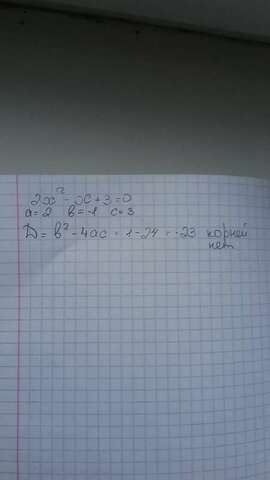 2x² - x + 3 = 0
a = 2 в = -1 c = 3
D = в² - 4ac = 1 - 24 = -23 корней
нет